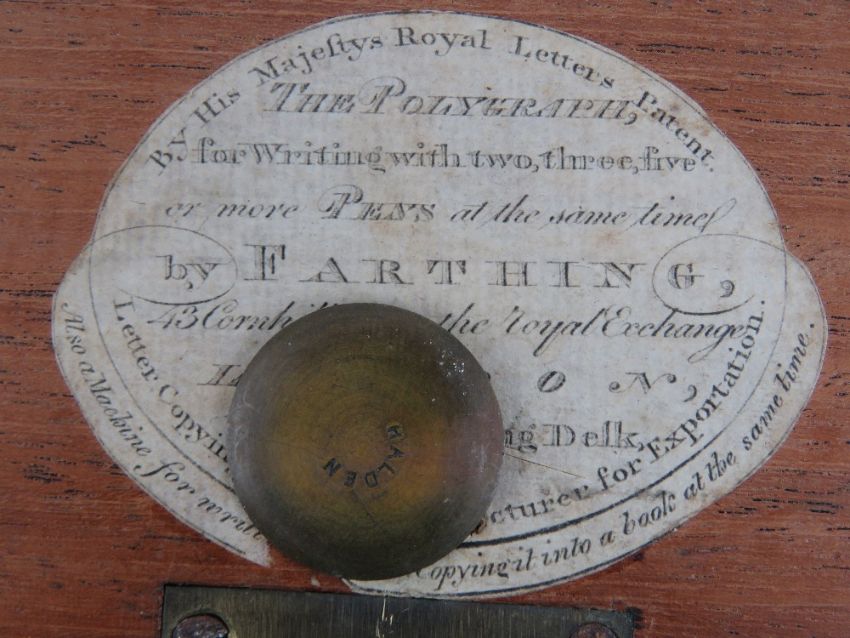 By His Majeſtys Royal Letters Patent.
THE POLYGRAPH,
for Writing with two, three, five
or more PENS at the same time
by FARTHING,
43 Cornhill the Royal Exchange
L O N,
ng Deſk,
Letter Copying cturer for Exportation.
Also a Machine for writin Copying it into a book at the same time.
HALDEN